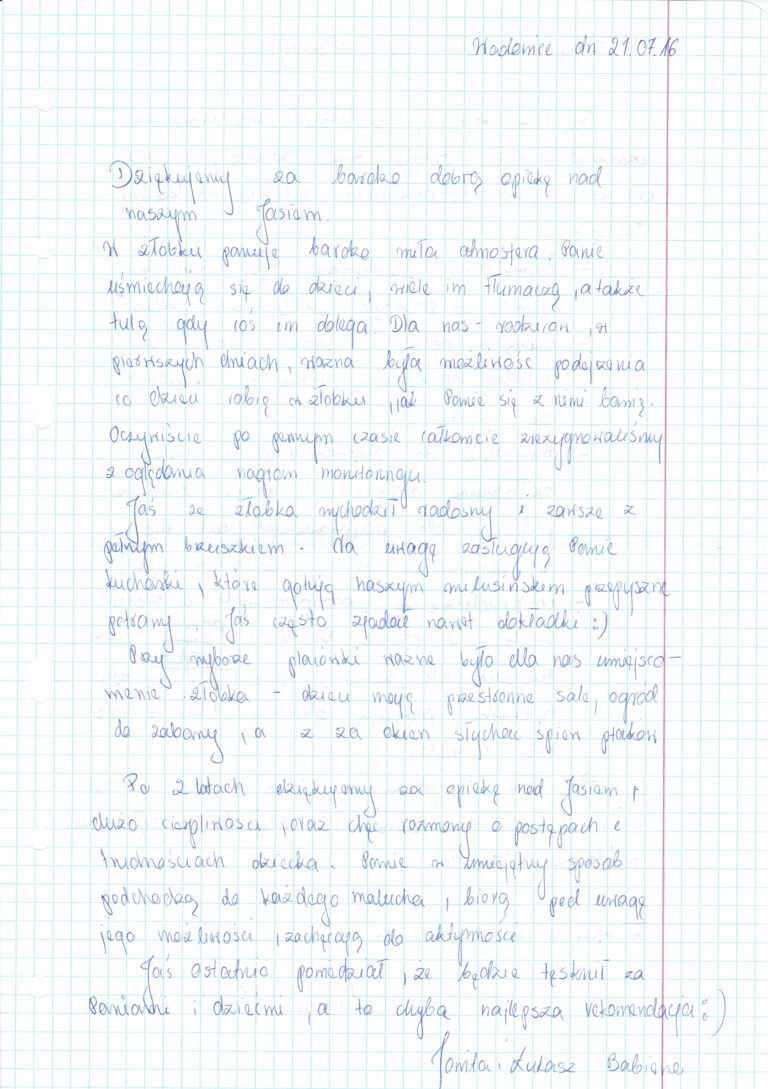 Wadowice dn 21.07.16
Dziękujemy za bardzo dobrą opiekę nad
naszym Jasiem.
W żłobku panuje bardzo miła atmosfera. Panie
uśmiechają się do dzieci, wiele im tłumaczą, a także
tulą gdy coś im dolega. Dla nas - rodziców, w
pierwszych dniach, ważna była możliwość podejrzenia
co dzieci robią w żłobku, jak Panie się z nimi bawią.
Oczywiście po pewnym czasie całkowicie zrezygnowaliśmy
z oglądania nagrań monitoringu.
Jaś ze żłobka wychodził radosny i zawsze z
pełnym brzuszkiem. Na uwagę zasługują Panie
kucharki, które gotują naszym milusińskim przepyszne
potrawy. Jaś często zjadał nawet dokładki :)
Przy wyborze placówki ważne było dla nas umiejsco-
wienie żłobka - dzieci mają przestronne sale, ogród
do zabawy, a z za okien słychać śpiew ptaków
Po 2 latach dziękujemy za opiekę nad Jasiem,
dużo cierpliwości, oraz chęć rozmowy o postępach i
trudnościach dziecka. Panie w umiejętny sposób
podchodzą do każdego malucha, biorą pod uwagę
jego możliwości, zachęcają do aktywności
Jaś ostatnio powiedział, że będzie tęsknił za
Paniami i dziećmi, a to chyba najlepsza rekomendacja :)
i Łukasz